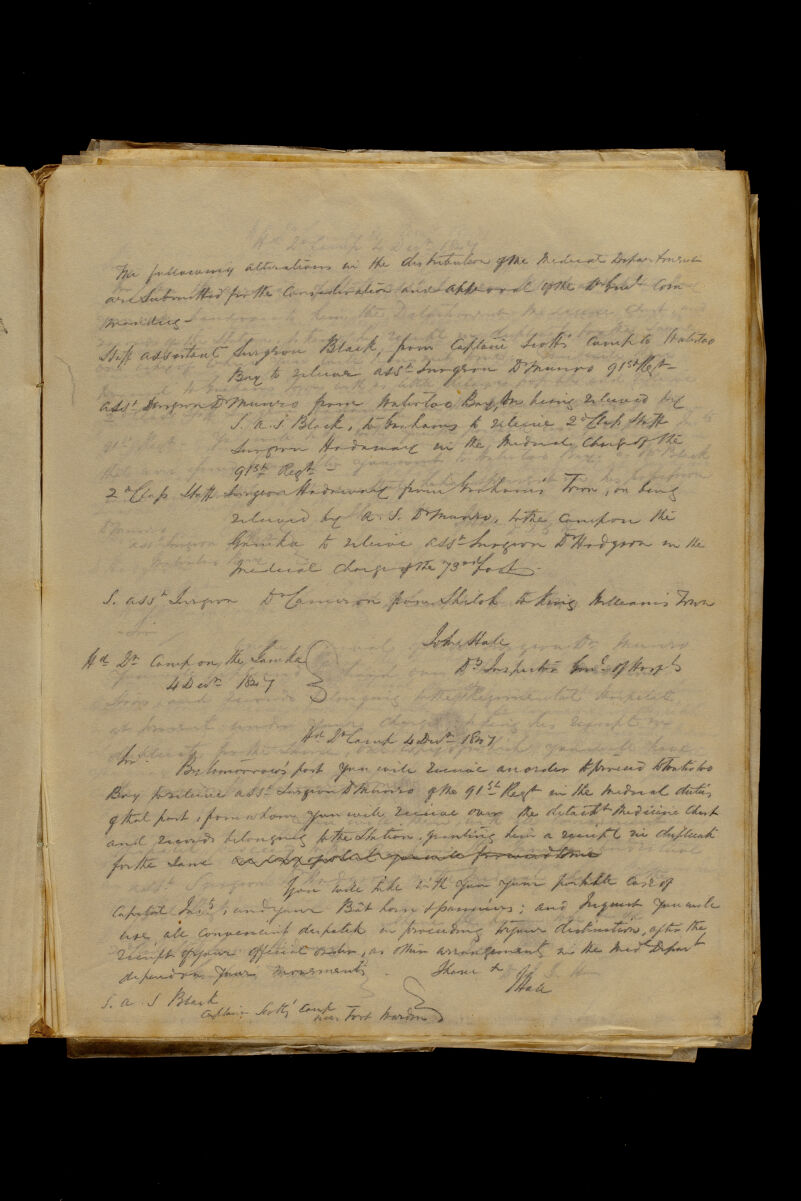 The following alterations in the distribution of the Medical Department
are submitted for the consideration and approval of the Lt Genl Com
manding -
Staff assistant Surgeon Black, from Captain Scott's Camp to Waterloo
Bay to relieve asst Surgeon Dr Munro 91st Regt -
Asst Surgeon Dr Munro from Waterloo Bay, on being relieved by
S. A. S Black, to Grahams to relieve 2d Class Staff
Surgeon Hadaway in the Medical Charge of the
91st Regt -
2d Class Staff Surgeon Hadaway from Grahams Town, on being
relieved by A. S. Dr Munro, to the Camp on the
to relieve asst Surgeon Dr Hodgson in the
Medical charge of the 73rd foot -
S. asst Surgeon Dr Cameron from Shiloh to King William's Town
John Hall
Dy Inspector Genl of Hospls
Hd Qr Camp on the
4 Decr 1847
Hd Qr Camp 4 Decr 1847
Sir
By tomorrow's post you will receive an order to proceed to Waterloo
Bay to relieve asst Surgeon Dr Munro of the 91st Regt in the medical duties
of that post, from whom you will receive over the detacht Medicine Chest
and records belonging to the Station, granting him a receipt in duplicate
for the same
You will take with you your portable case of
Capital Inst, and your Bât horse & panniers; and I request you will
use all convenient despatch in proceeding to your destination, after the
receipt of your official order, as other arrangements in the Medl Depart
depend on your movements. I have &
J Hall
S. A. S Black
Captain Scotts' Camp
near Fort Warden